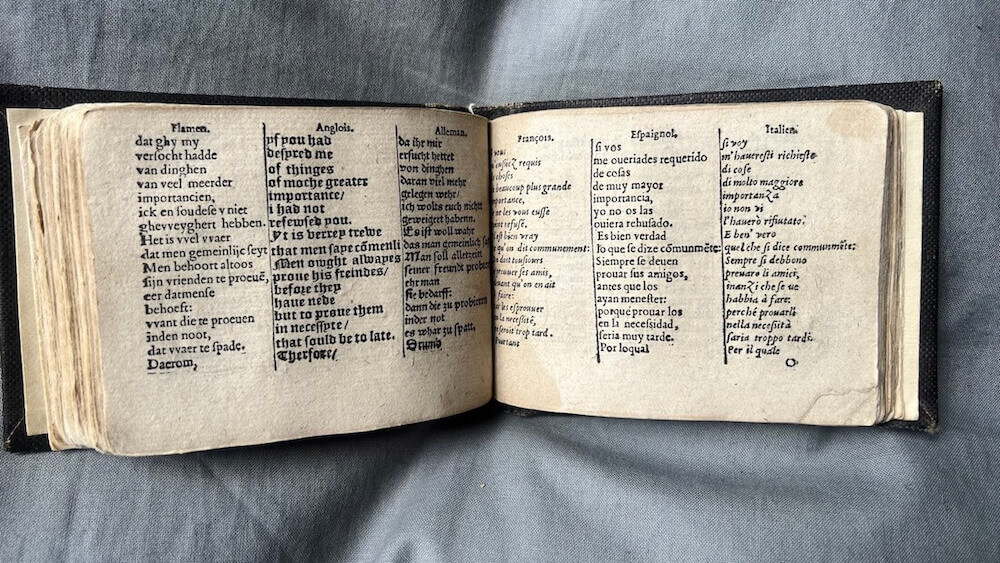 Flamen.
dat ghy my
versocht hadde
van dinghen
van veel meerder
importancien,
ick en soudese v niet
ghevveyghert hebben.
Het is vvel vvaer
dat men gemeinlijc seyt
Men behoort altoos
sijn vrienden te proeuē,
eer datmense
behoeft:
vvant die te proeuen
inden noot,
dat vvaer te spade.
Daerom,
Anglois.
yf you had
desyred me
of thinges
of moche greater
importance/
i had not
refewsed you.
Yt is verrey trewe
that men saye cōmenli
Men ought alwayes
proue his freindes/
before they
haue nede
but to proue them
in necessyte/
that sould be to late.
Therfore/
Alleman.
da ihr mir
ersucht hettet
von dinghen
daran viel mehr
gelegen wehr/
ich wolts euch nicht
geweigert habenn.
Es ist woll wahr
das man gemeinlich
Man soll allezeit
seiner freundt
ehr man
sie bedarff:
dann die zu
inder not
es whar zu spatt,
Drumb
François.
vous
requis
choses
beaucoup plus grande
les vous eusse
refusé.
bien vray
qu'on dit communement:
doit tousiours
ses amis,
auant qu'on en ait
faire:
les esprouuer
la necessité,
seroit trop tard.
Pourtant
Espaignol.
si vos
me oueriades requerido
de cosas
de muy mayor
importancia,
yo no os las
ouiera rehusado.
Es bien verdad
lo que se dize cōmunmēte:
Siempre se deuen
prouar sus amigos,
antes que los
ayan menester:
porque prouar los
en la necessidad,
seria muy tarde.
Por loqual
Italien.
si voy
m'haueresti richieste
di cose
di molto maggiore
importanza
io non vi
l'hauerò rifiutato.
E ben' vero
quel che si dice communmēte:
Sempre si debbono
preuare li amici,
inanzi che se ue
habbia à fare:
perché prouarli
nella necessità
saria troppo tardi.
Per il quale
O